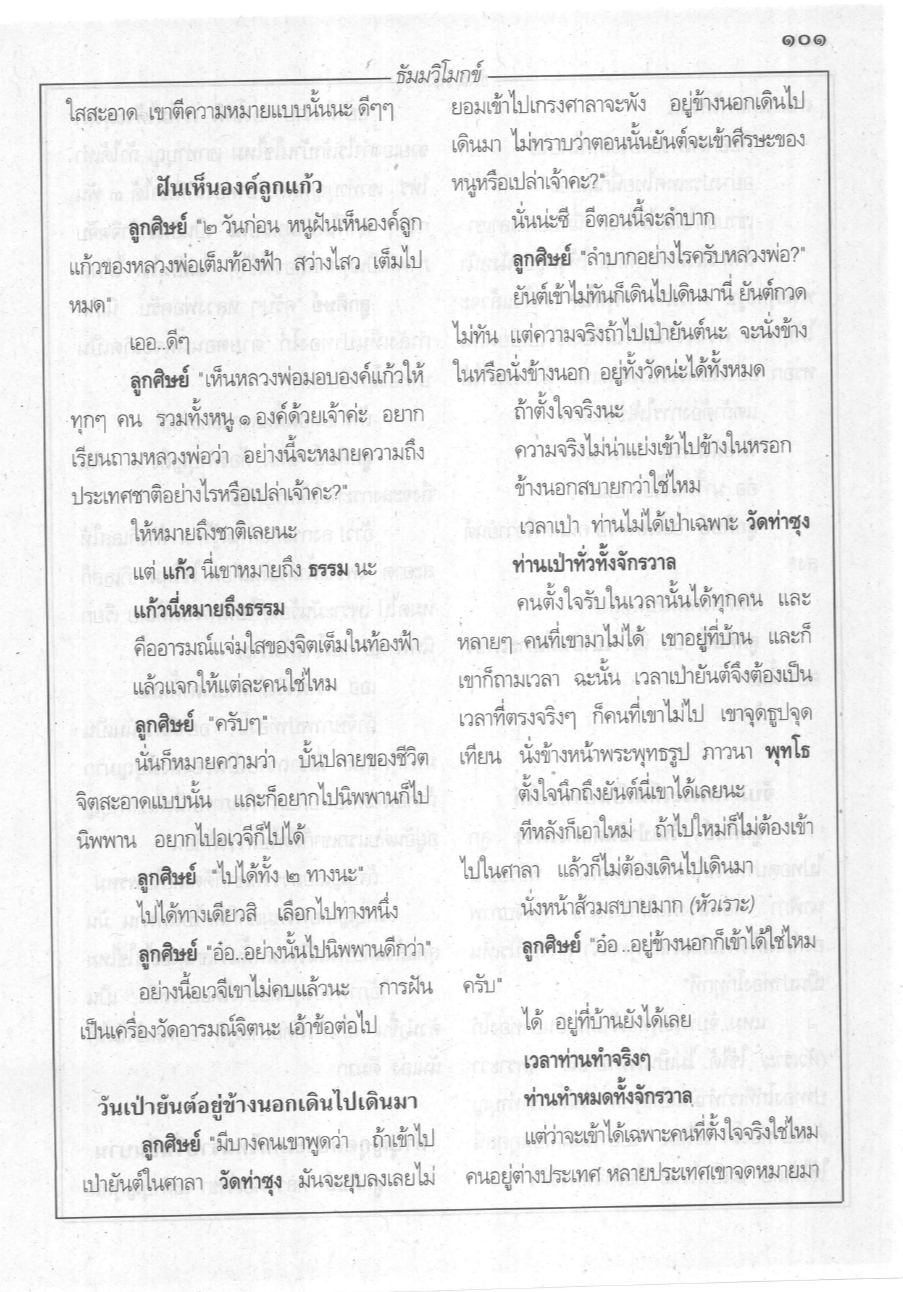 ๑๐๑
ธัมมวิโมกข์
ใสสะอาด เขาตีความหมายแบบนั้นนะ ดีๆๆ
ฝันเห็นองค์ลูกแก้ว
ลูกศิษย์ "๒ วันก่อน หนูฝันเห็นองค์ลูก
แก้วของหลวงพ่อเต็มท้องฟ้า สว่างไสว เต็มไป
หมด"
เออ..ดีๆ
ลูกศิษย์ "เห็นหลวงพ่อมอบองค์แก้วให้
ทุกๆ คน รวมทั้งหนู ๑ องค์ด้วยเจ้าค่ะ อยาก
เรียนถามหลวงพ่อว่า อย่างนี้จะหมายความถึง
ประเทศชาติอย่างไรหรือเปล่าเจ้าคะ?"
ให้หมายถึงชาติเลยนะ
แต่ แก้ว นี่เขาหมายถึง ธรรม นะ
แก้วนี่หมายถึงธรรม
คืออารมณ์แจ่มใสของจิตเต็มในท้องฟ้า
แล้วแจกให้แต่ละคนใช่ไหม
ลูกศิษย์ "ครับๆ"
นั่นก็หมายความว่า บั้นปลายของชีวิต
จิตสะอาดแบบนั้น และก็อยากไปนิพพานก็ไป
นิพพาน อยากไปอเวจีก็ไปได้
ลูกศิษย์ "ไปได้ทั้ง ๒ ทางนะ"
ไปได้ทางเดียวสิ เลือกไปทางหนึ่ง
ลูกศิษย์ "อ๋อ..อย่างนั้นไปนิพพานดีกว่า"
อย่างนี้อเวจีเขาไม่คบแล้วนะ การฝัน
เป็นเครื่องวัดอารมณ์จิตนะ เอ้าข้อต่อไป
วันเป่ายันต์อยู่ข้างนอกเดินไปเดินมา
ลูกศิษย์ "มีบางคนเขาพูดว่า ถ้าเข้าไป
เป่ายันต์ในศาลา วัดท่าซุง มันจะยุบลงเลยไม่
ยอมเข้าไปเกรงศาลาจะพัง อยู่ข้างนอกเดินไป
เดินมา ไม่ทราบว่าตอนนั้นยันต์จะเข้าศีรษะของ
หนูหรือเปล่าเจ้าคะ?"
นั่นน่ะซี อีตอนนี้จะลำบาก
ลูกศิษย์ "ลำบากอย่างไรครับหลวงพ่อ?"
ยันต์เข้าไม่ทันก็เดินไปเดินมานี่ ยันต์กวด
ไม่ทัน แต่ความจริงถ้าไปเป่ายันต์นะ จะนั่งข้าง
ในหรือนั่งข้างนอก อยู่ทั้งวัดน่ะได้ทั้งหมด
ถ้าตั้งใจจริงนะ
ความจริงไม่น่าแย่งเข้าไปข้างในหรอก
ข้างนอกสบายกว่าใช่ไหม
เวลาเป่า ท่านไม่ได้เป่าเฉพาะ วัดท่าซุง
ท่านเป่าทั่วทั้งจักรวาล
คนตั้งใจรับในเวลานั้นได้ทุกคน และ
หลายๆ คนที่เขามาไม่ได้ เขาอยู่ที่บ้าน และก็
เขาก็ถามเวลา ฉะนั้น เวลาเป่ายันต์จึงต้องเป็น
เวลาที่ตรงจริงๆ ก็คนที่เขาไม่ไป เขาจุดธูปจุด
เทียน นั่งข้างหน้าพระพุทธรูป ภาวนา พุทโธ
ตั้งใจนึกถึงยันต์นี่เขาได้เลยนะ
ทีหลังก็เอาใหม่ ถ้าไปใหม่ก็ไม่ต้องเข้า
ไปในศาลา แล้วก็ไม่ต้องเดินไปเดินมา
นั่งหน้าส้วมสบายมาก (หัวเราะ)
ลูกศิษย์ "อ๋อ..อยู่ข้างนอกก็เข้าได้ใช่ไหม
ครับ"
ได้ อยู่ที่บ้านยังได้เลย
เวลาท่านทำจริงๆ
ท่านทำหมดทั้งจักรวาล
แต่ว่าจะเข้าได้เฉพาะคนที่ตั้งใจจริงใช่ไหม
คนอยู่ต่างประเทศ หลายประเทศเขาจดหมายมา